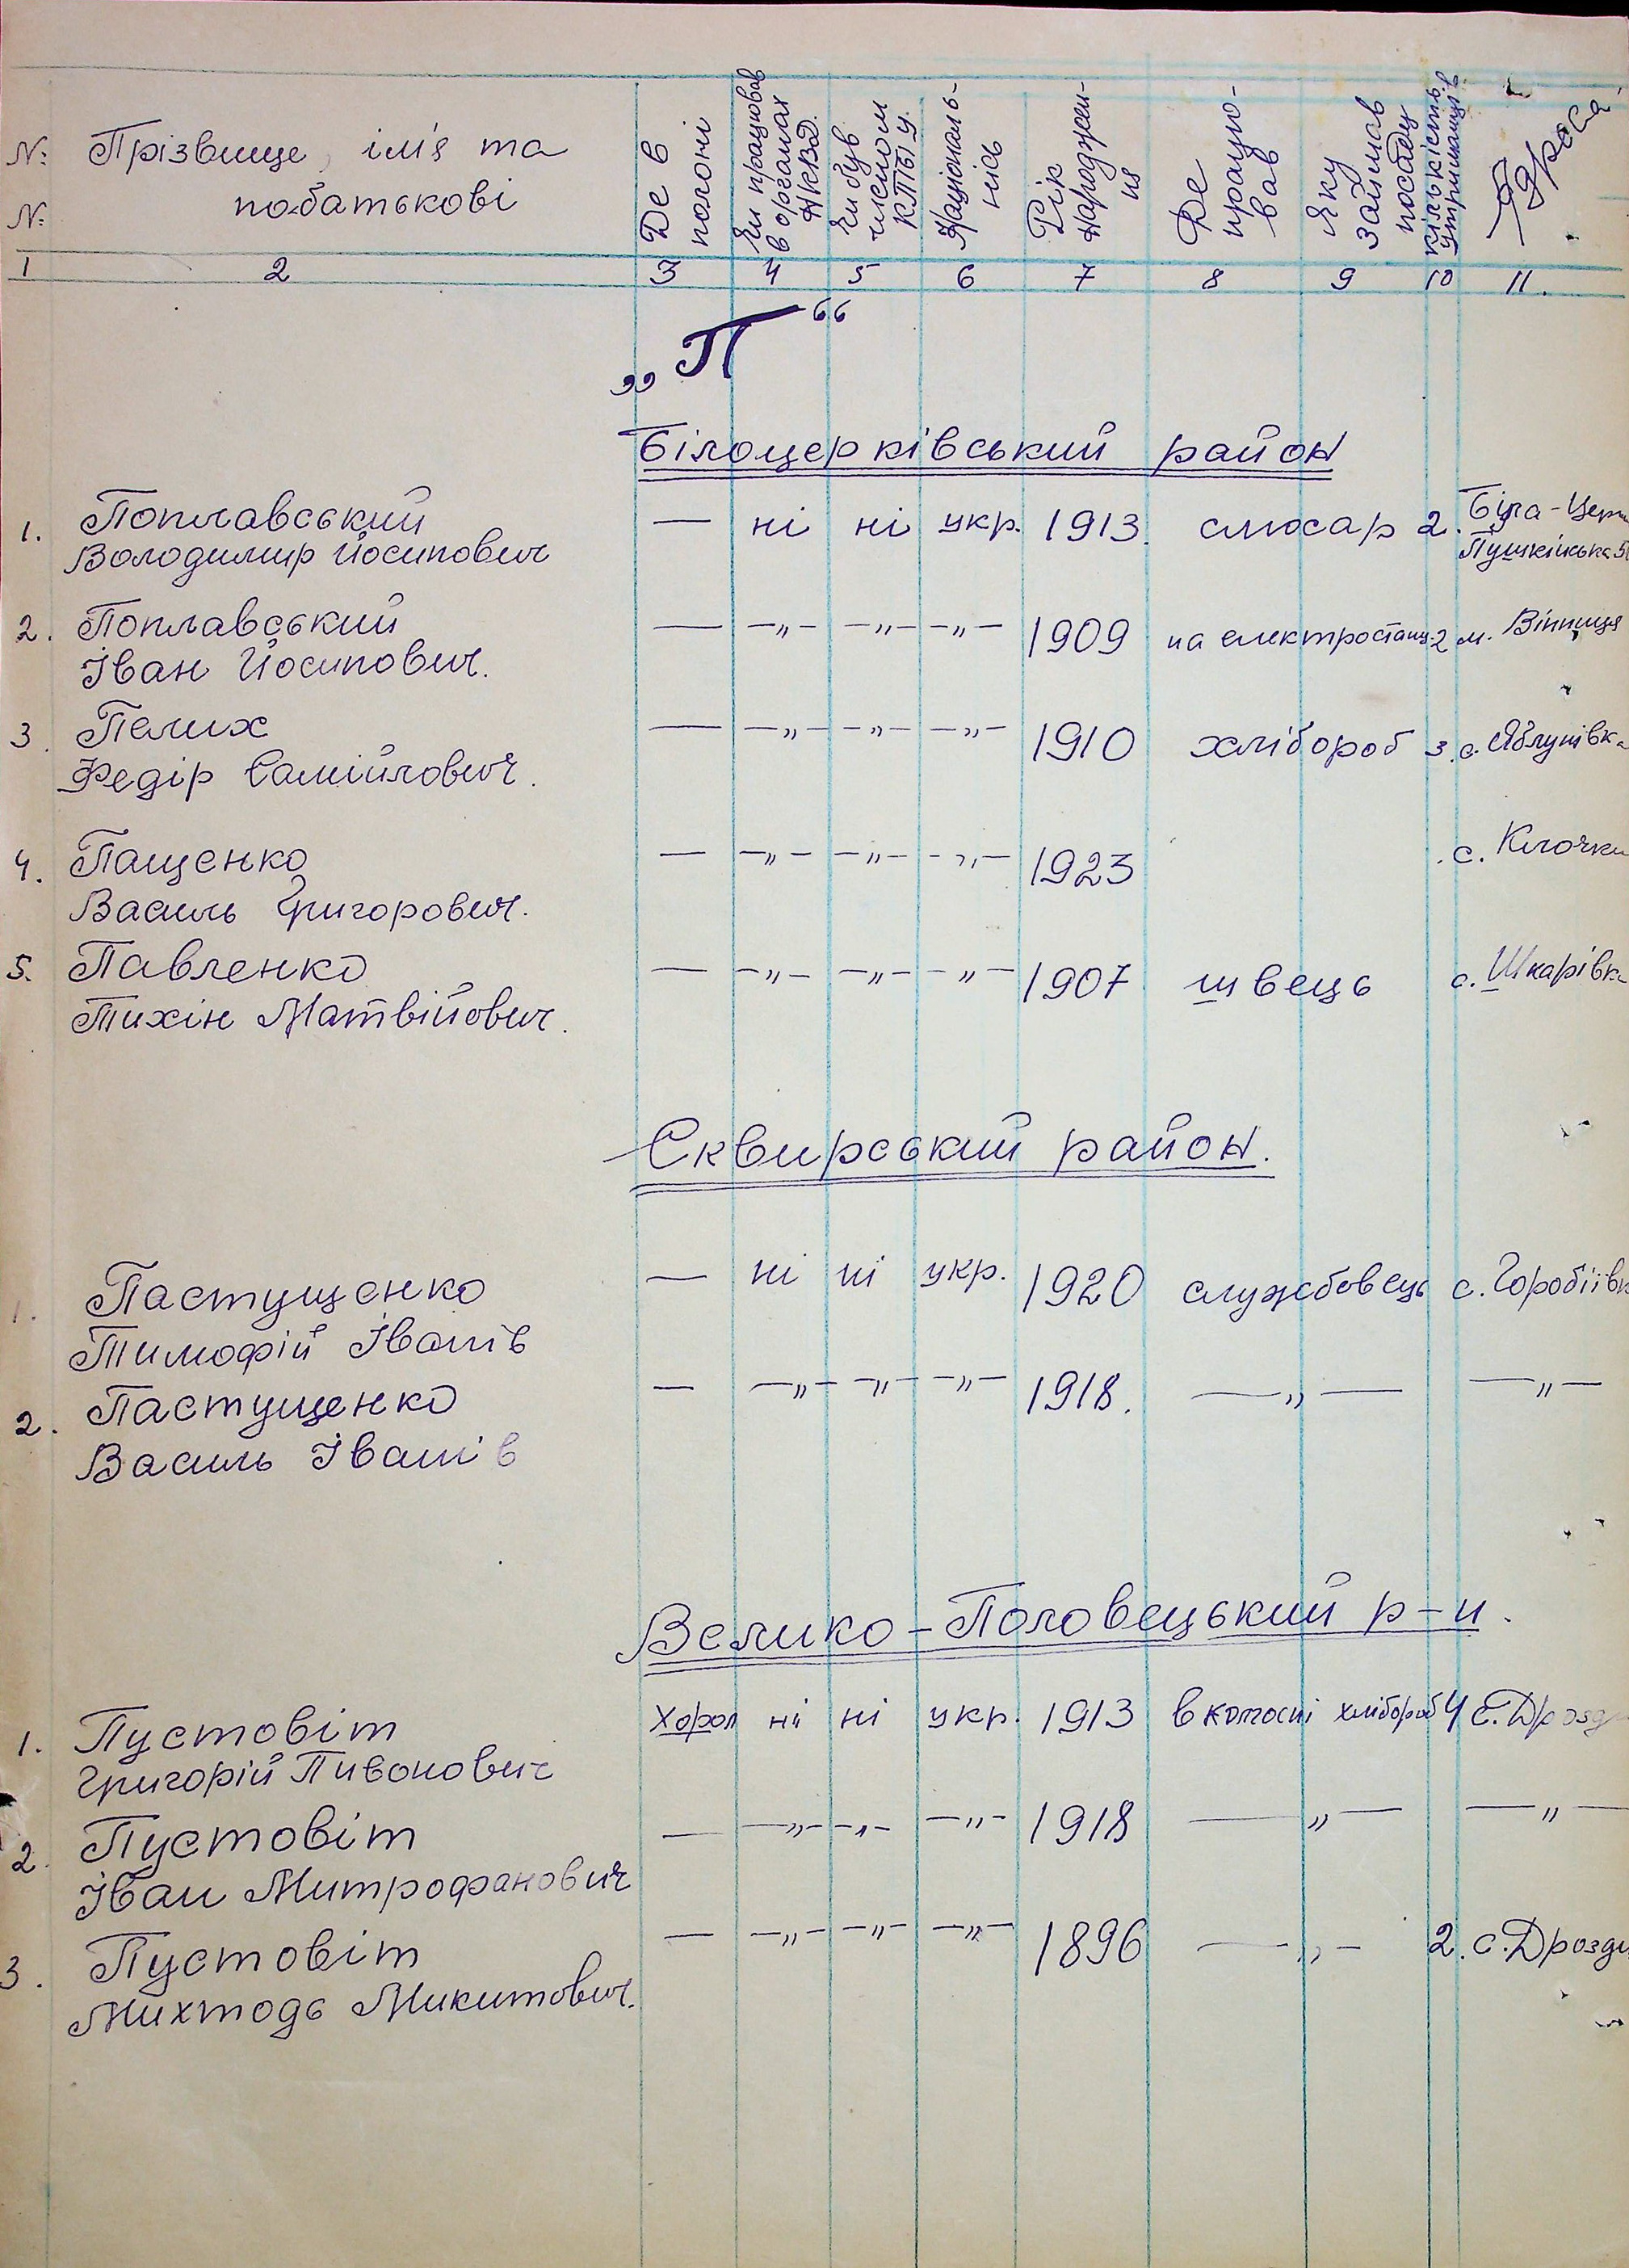 № Прізвище, ім'я та
№ по-батькові
Де в полоні
Чи працював в органах НКВД.
Чи був членом КП/б/У.
Національ-ність
Рік Народжен-ня
Де працю-вав
Яку займав посаду
Кількість утриманців
Адреса
1 2 3 4 5 6 7 8 9 10 11.
„П“
Білоцерківський район
1. Поплавський — ні ні укр. 1913. слюсар 2. Біла-Церк
Володимир Йосипович Пушкінська 5
2. Поплавський — —„— —„— —„— 1909 на електростанц. 2 м. Вінниця
Іван Йосипович.
3. Пелих — —„— —„— —„— 1910 хлібороб 3. с. Яблунівка
Федір Самійлович.
4. Пащенко — —„— —„— —„— 1923 с. Клочки
Василь Григорович.
5. Павленко — —„— —„— —„— 1907 швець с. Шкарівка
Тихін Матвійович.
Сквирський район.
1. Пастущенко — ні ні укр. 1920 службовець с. Горобіївк
Тимофій Іванів
2. Пастущенко — —„— —„— —„— 1918. —„— —„—
Василь Іванів
Велико-Половецький р-н.
1. Пустовіт Хорол ні ні укр. 1913 в колгоспі хлібороб 4 с. Дрозди
Григорій Пивонович
2. Пустовіт — —„— —„— —„— 1918 —„— —„—
Іван Митрофанович
3. Пустовіт — —„— —„— —„— 1896 —„— 2. с. Дрозди
Михтодь Микитович.